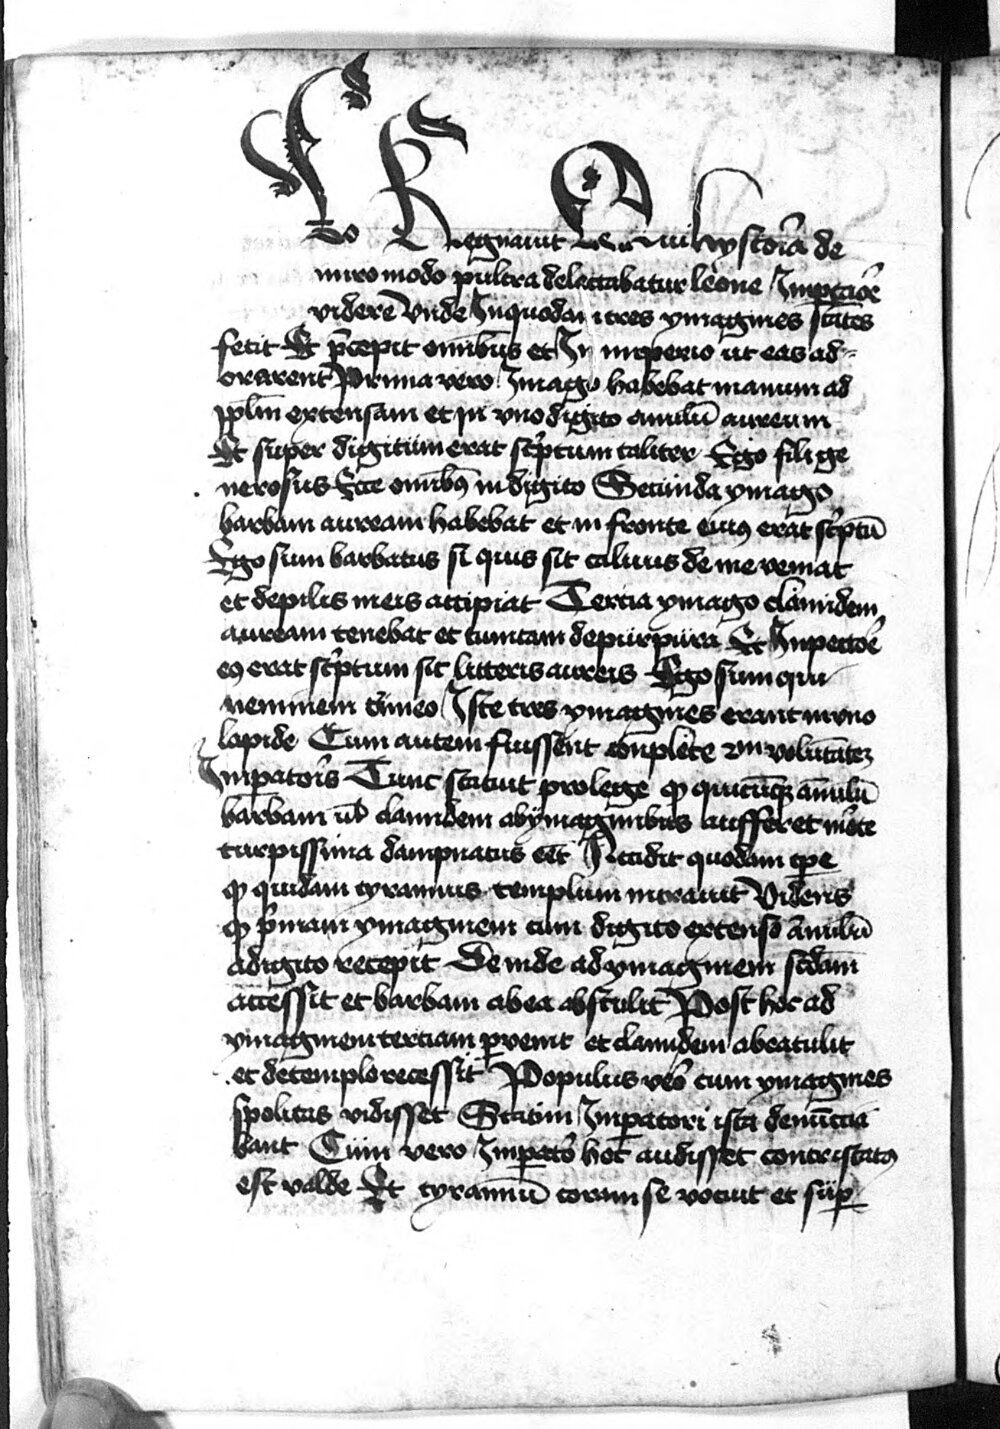 Leo Regnavit hystoria de
miro modo pulcra delectabatur leone Imperator
videre Vnde Inquodam tres ymagines stantes
fecit Et p̄cepit omnibus et In imperio ut eas ad-
orarent Prima vero Imago habebat manum ad
pp̄lm extensam et in vno digito anulū aureum
Et super digitum erat sc̄ptum taliter Ego filige
nerosus Ecce omnibꝰ in digito Secunda ymago
barbam auream habebat et in fronte eiuꝰ erat sc̄ptū
Ego sum barbatus si quis sit caluus de me veniat
et depilis meis accipiat Tercia ymago clamidem
auream tenebat et tunicam depurpura Et Inpectoē
eꝰ erat sc̄ptum sic litteris aureis Ego sum qui
neminem timeo Iste tres ymagines erant in vno
lapide Cum autem fuissent conplete voluntatē
Imp̄atoris Tunc statuit prolege ꝙ quicūqꝫ anulū
barbam ul̄ clamidem abymaginibus aufferet morte
turpissima dampnatus eēt Accidit quodam tp̄e
ꝙ quidam tyrannus templum intrauit Videns
ꝙ p̄mam ymaginem cum digito extenso anulū
adigito recepit Deinde ad ymaginem scd̄am
accessit et barbam abea abstulit Post hoc ad
ymaginem terciam p̄venit et clamidem abeatulit
et detemplo recessit Populus vēo cum ymagines
spolitas vidisset Statim Imp̄atori ista denūccia
bant Cum vero Imp̄ato hoc audisset contristatꝰ
est valde Et tyrannū coram se vocuit et sup̄